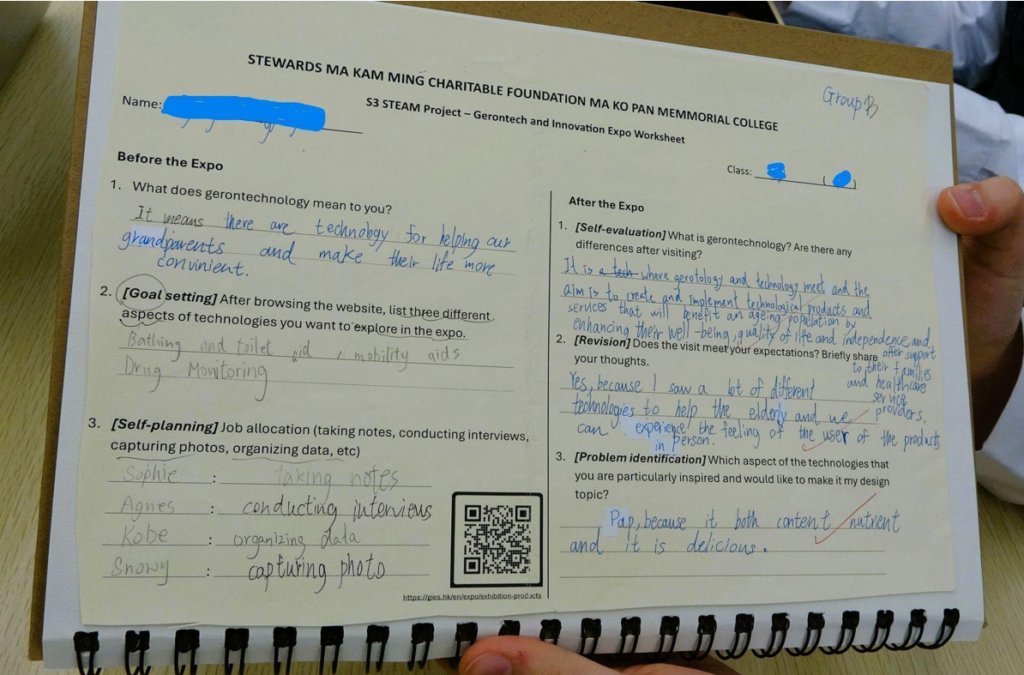 STEWARDS MA KAM MING CHARITABLE FOUNDATION MA KO PAN MEMMORIAL COLLEGE
Group B
S3 STEAM Project – Gerontech and Innovation Expo Worksheet
Name:
Class: ( )
Before the Expo
1. What does gerontechnology mean to you?
It means there are technology for helping our
grandparents and make their life more
convinient.
2. [Goal setting] After browsing the website, list three different
aspects of technologies you want to explore in the expo.
Bathing and toilet aid , mobility aids
Drug Monitoring
3. [Self-planning] Job allocation (taking notes, conducting interviews,
capturing photos, organizing data, etc)
Sophie : taking notes
Agnes : conducting interviews
Kobe : organizing data
Snowy : capturing photo
https://gies.hk/en/expo/exhibition-products
After the Expo
1. [Self-evaluation] What is gerontechnology? Are there any
differences after visiting?
It is a tech where gerotology and technology meet and the
aim is to create and implement technological products and
services that will benefit an ageing population by
enhancing their well-being, quality of life and independence and
offer support
to their families
and healthcare
service
providers.
2. [Revision] Does the visit meet your expectations? Briefly share
your thoughts.
Yes, because I saw a lot of different
technologies to help the elderly and we
can experience the feeling of the user of the products
in person.
3. [Problem identification] Which aspect of the technologies that
you are particularly inspired and would like to make it my design
topic?
Pap, because it both content nutrient
and it is delicious.